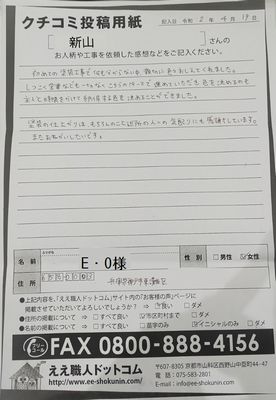 クチコミ投稿用紙
記入日 令和 2 年 4 月 19 日
新山 さんの
お人柄や工事を依頼した感想などをご記入ください。
初めての塗装工事で何もわからない中、親切に
してくれました。
しつこく営業なども一切なくこちらのペースで進めていただき色を決めるのも
色を決めることができました。
塗装の仕上がりはもちろんのこと近所の人への気配りにも感謝しています。
またおねがいしたいです。
ふりがな
名前 E・O様 性別 □男性 ☑女性
住所 兵庫県神戸市東灘区
●上記内容を、「ええ職人ドットコム」サイト内の「お客様の声」ページに
掲載させていただいてよろしいでしょうか? → ☑良い □ダメ
●住所の掲載について → □すべて良い ☑市区町村まで □ダメ
●名前の掲載について → □すべて良い □苗字のみ ☑イニシャルのみ □ダメ
FAX 0800-888-4156
ええ職人ドットコム
http://www.ee-shokunin.com/
〒607-8305 京都市山科区西野山中臣町44-47
電話:075-583-2801
E-mail:info@ee-shokunin.com